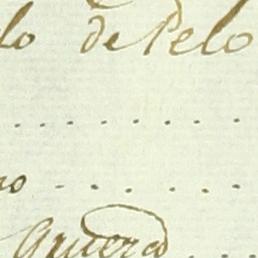 lo de Pelo
. . . . . . . .
no - . . . . . .
Guerra . . .